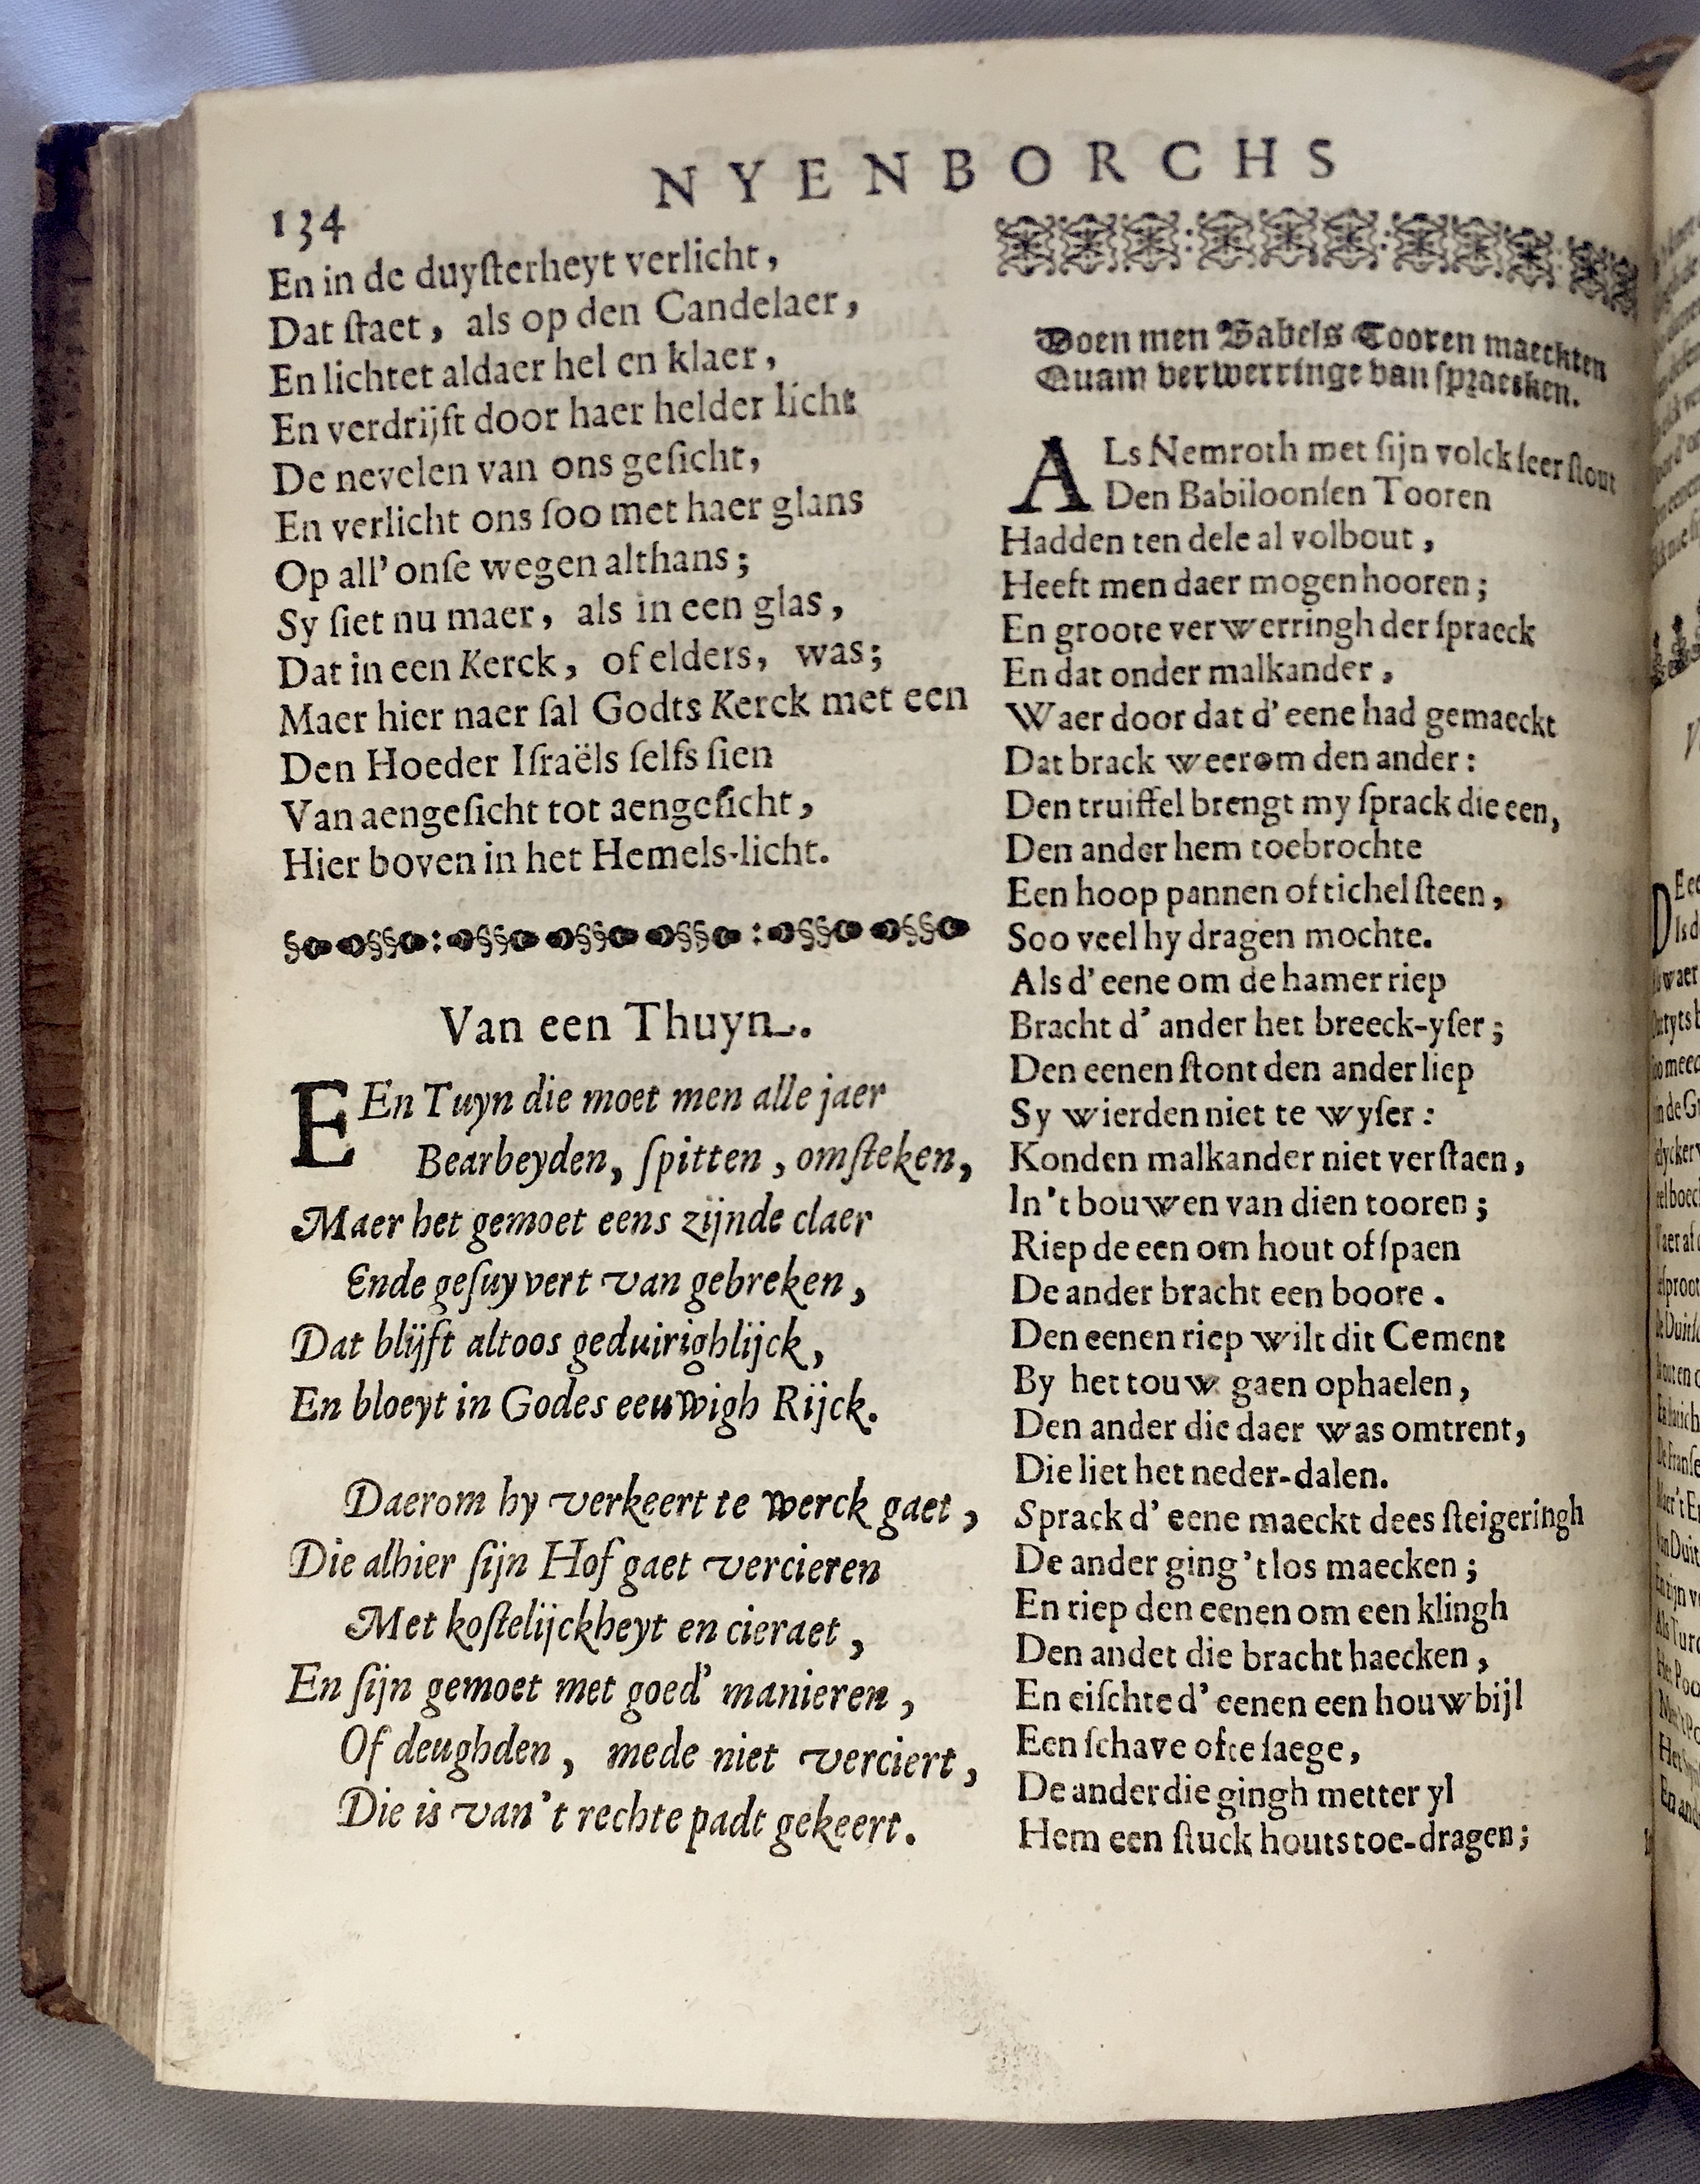 NYENBORCHS
134
En in de duyſterheyt verlicht,
Dat ſtaet, als op den Candelaer,
En lichtet aldaer hel en klaer,
En verdrijft door haer helder licht
De nevelen van ons geſicht,
En verlicht ons ſoo met haer glans
Op all' onſe wegen althans;
Sy ſiet nu maer, als in een glas,
Dat in een Kerck, of elders, was;
Maer hier naer ſal Godts Kerck met een
Den Hoeder Iſraëls ſelfs ſien
Van aengeſicht tot aengeſicht,
Hier boven in het Hemels-licht.
Van een Thuyn.
EEn Tuyn die moet men alle jaer
Bearbeyden, ſpitten, omſteken,
Maer het gemoet eens zijnde claer
Ende geſuyvert van gebreken,
Dat blijft altoos geduirighlijck,
En bloeyt in Godes eeuwigh Rijck.
Daerom hy verkeert te werck gaet,
Die alhier ſijn Hof gaet vercieren
Met koſtelijckheyt en cieraet,
En ſijn gemoet met goed' manieren,
Of deughden, mede niet verciert,
Die is van't rechte padt gekeert.
Doen men Babels Tooren maeckten
Quam verwerringe van ſpraecken.
ALs Nemroth met ſijn volck ſeer ſtout
Den Babiloonſen Tooren
Hadden ten dele al volbout,
Heeft men daer mogen hooren;
En groote verwerringh der ſpraeck
En dat onder malkander,
Waer door dat d' eene had gemaeckt
Dat brack weerom den ander:
Den truiffel brengt my ſprack die een,
Den ander hem toebrochte
Een hoop pannen of tichelſteen,
Soo veel hy dragen mochte.
Als d' eene om de hamer riep
Bracht d' ander het breeck-yſer;
Den eenen ſtont den ander liep
Sy wierden niet te wyſer:
Konden malkander niet verſtaen,
In 't bouwen van dien tooren;
Riep de een om hout of ſpaen
De ander bracht een boore.
Den eenen riep wilt dit Cement
By het touw gaen ophaelen,
Den ander die daer was omtrent,
Die liet het neder-dalen.
Sprack d' eene maeckt dees ſteigeringh
De ander ging 't los maecken;
En riep den eenen om een klingh
Den andet die bracht haecken,
En eiſchte d' eenen een houwbijl
Een ſchave ofte ſaege,
De ander die gingh metter yl
Hem een ſtuck houts toe-dragen;